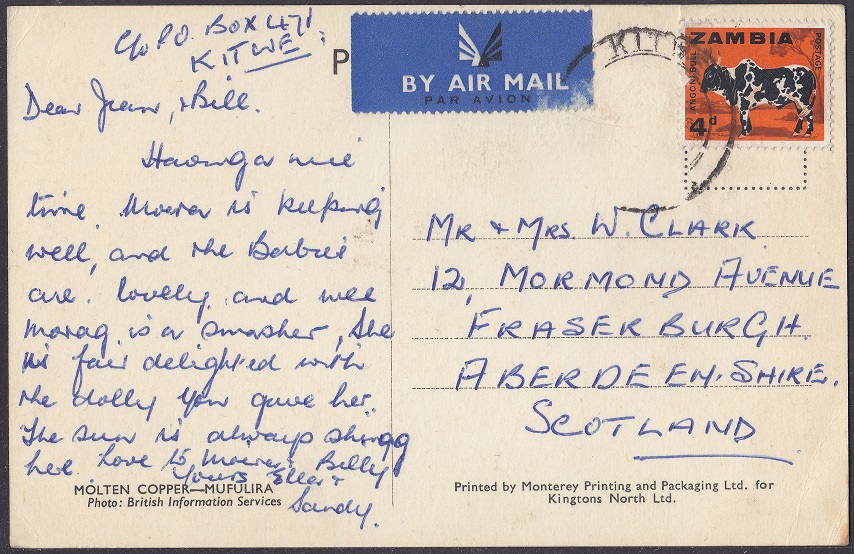 C/o P.O. BOX 471,
KITWE.
P
BY AIR MAIL
PAR AVION
KITW
ZAMBIA
POSTAGE
ANGONI BULL
4d
Dear Jean, & Bill.
Having a nice
time. Moira is keeping
well, and the Babies
are lovely, and wee
Morag is a smasher, She
is fair delighted with
the dolly you gave her.
The sun is always shining
here. Love to Moira & Billy
Yours Ella &
Sandy.
MOLTEN COPPER—MUFULIRA
Photo: British Information Services
MR & MRS. W. CLARK
12, MORMOND AVENUE
FRASERBURGH.
ABERDEEN-SHIRE.
SCOTLAND
Printed by Monterey Printing and Packaging Ltd. for
Kingtons North Ltd.